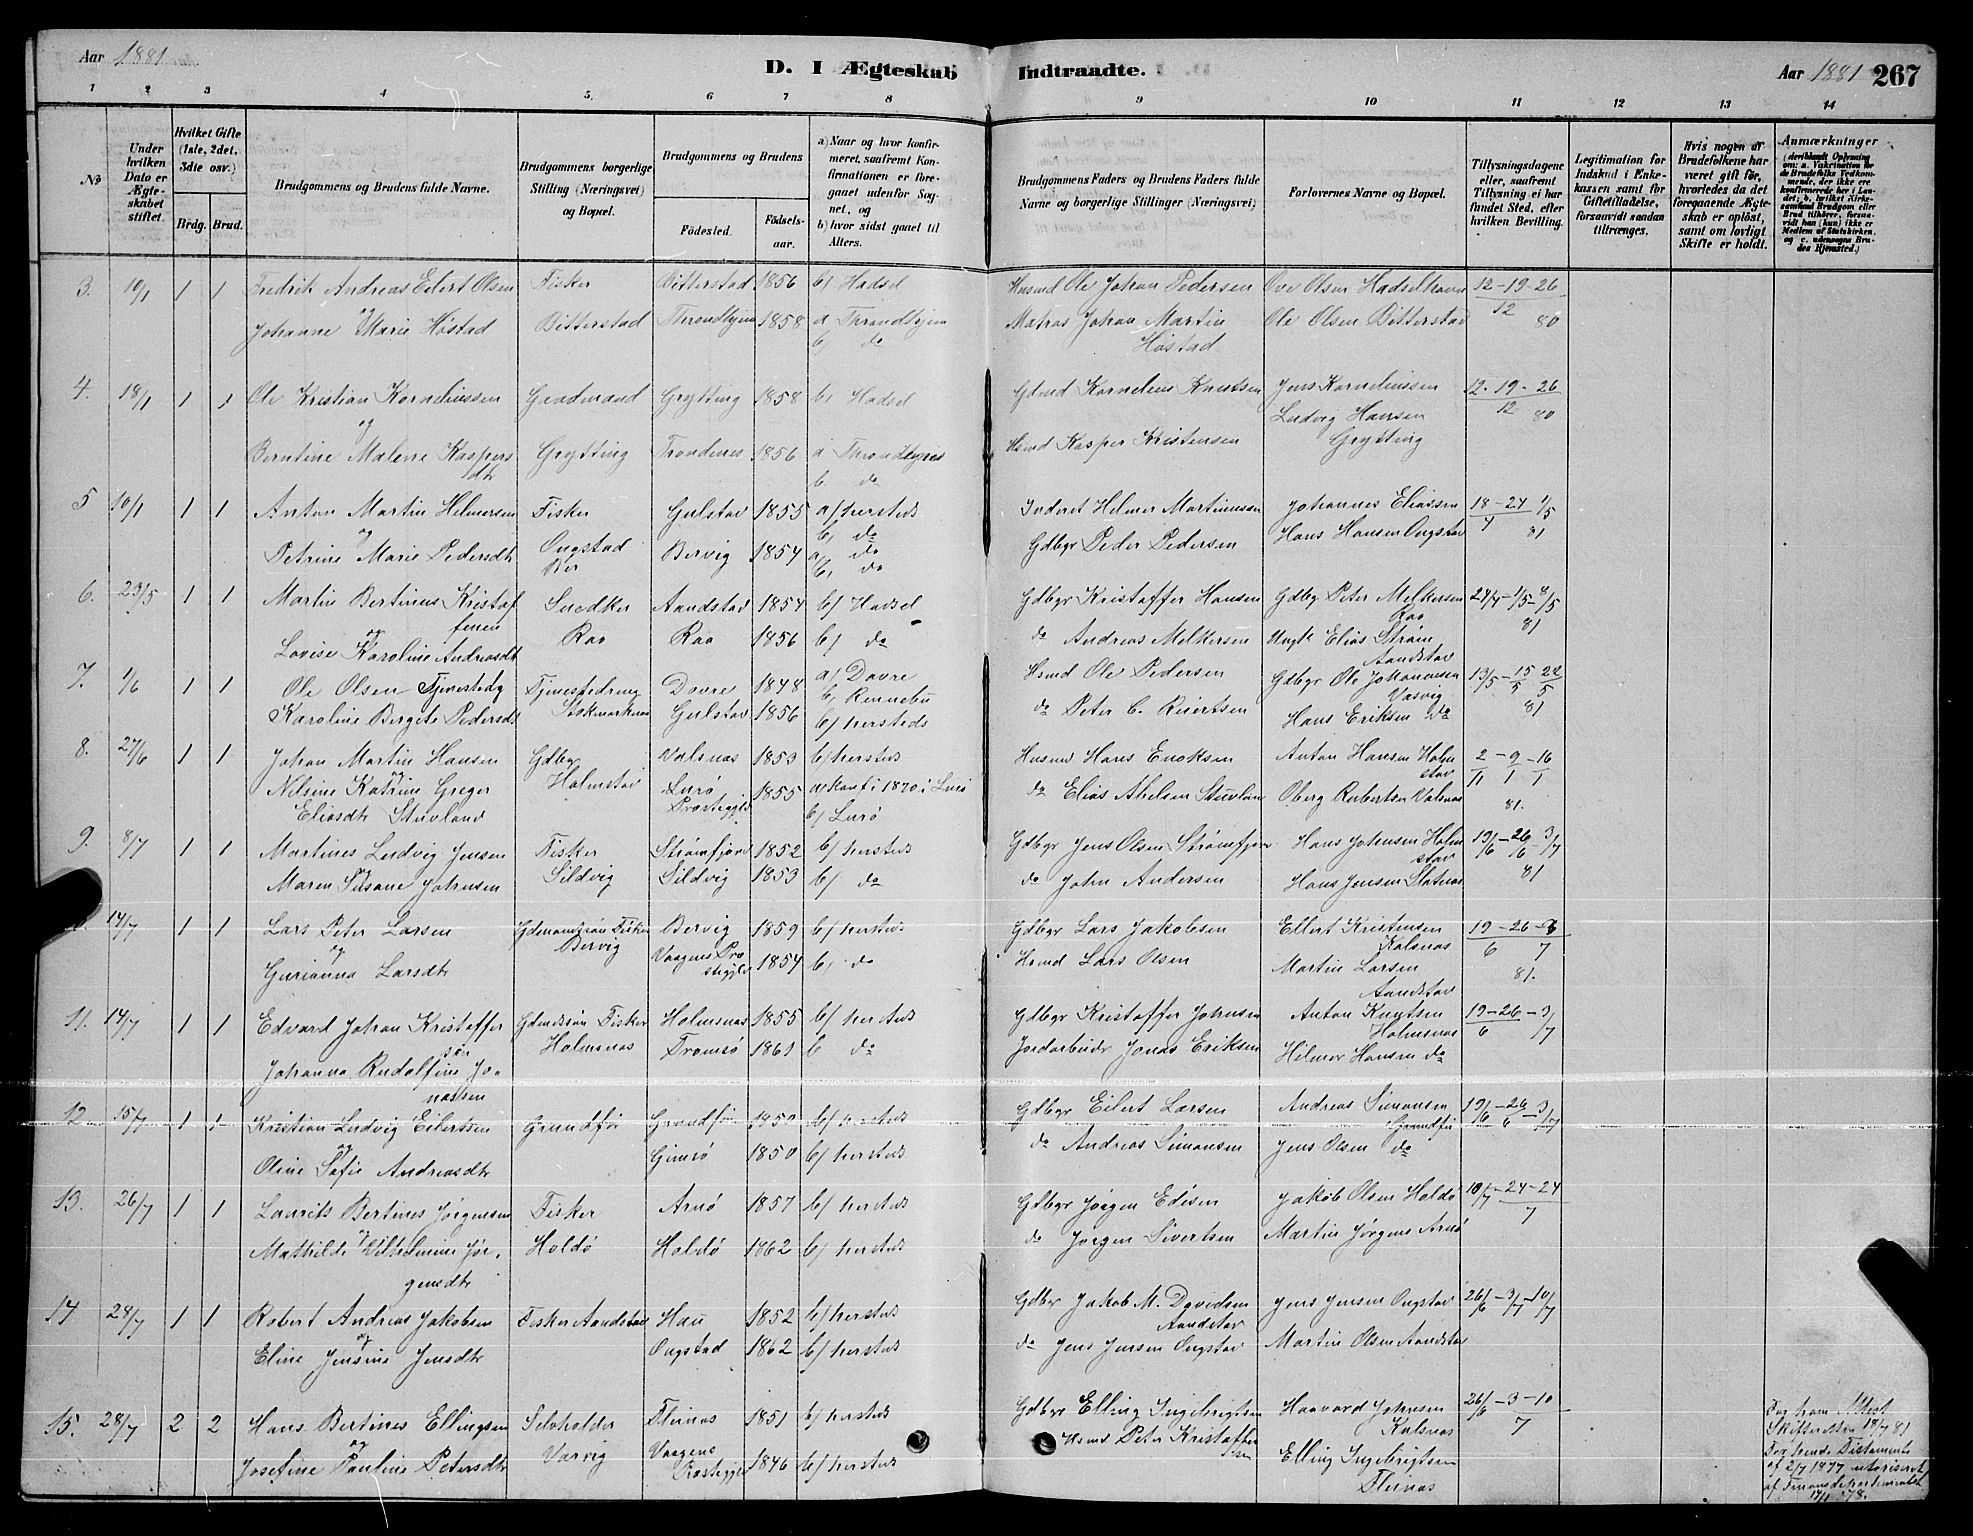 Aar 1881
D. I Ægteskab Indtraadte.
Aar 1881 267
1 2 3 4 5 6 7 8 9 10 11 12 13 14
No
Under hvilken Dato er Ægteskabet stiftet.
Hvilket Gifte (1ste, 2det, 3die osv.)
Brdg. Brud.
Brudgommens og Brudens fulde Navne.
Brudgommens borgerlige Stilling (Næringsvei) og Bopæl.
Brudgommens og Brudens
Fødested. Fødselsaar.
a) Naar og hvor konfirmeret, saafremt Konfirmationen er foregaaet udenfor Sognet, og
b) hvor sidst gaaet til Alters.
Brudgommens Faders og Brudens Faders fulde Navne og borgerlige Stillinger (Næringsvei)
Forlovernes Navne og Bopæl.
Tillysningsdagene eller, saafremt Tillysning ei har fundet Sted, efter hvilken Bevilling.
Legitimation for Indskud i Enkekassen samt for Giftetilladelse, forsaavidt saadan tiltrænges.
Hvis nogen af Brudefolkene har været gift før, hvorledes da det foregaaende Ægteskab er opløst, samt om lovligt Skifte er holdt.
Anmærkninger
3. 10/1 1 1 Fredrik Andreas Eilert Olsen Fisker Bitterstad 1856 b/ Hadsel Husmd Ole Johan Pedersen Ove Olsen Hadselhavn 12-19-26
og
Johanne Marie Høstad Bitterstad Throndhjem 1858 a Throndhjem Matros Johan Martin Ole Olsen Bitterstad 12 80
b/ do Høstad
4. 18/1 1 1 Ole Kristian Korneliussen Gaardmand Grytting 1858 b/ Hadsel Gdmd Kornelius Knutsen Jens Korneliussen 12-19-26
og Ludvig Hansen 12 80
Berntine Malene Kaspersdtr Grytting Trondenes 1856 a Husmd Kasper Kristensen Grytting
b. do
5 10/1 1 1 Anton Martin Helmersen Fisker Gulstav 1855 a/ hersteds Inderst Helmer Martinussen Johannes Eliassen 18-24 1/5
og b/ do 4 81
Petrine Marie Pedersdtr Ongstad Bervig 1854 a/ do Gdbgr Peder Pedersen Hans Hansen Ongstav
b/ do
6. 23/5 1 1 Martin Bertinus Kristoffersen Snedker Aandstav 1854 b/ Hadsel Gdbgr Kristoffer Hansen Gdbg Peter Melkersen 24/4-1/5-8/5
og Raa Raa 1856 b/ do do Andreas Melkersen Raa 81
Lovise Karoline Andreasdtr Ungk Elias Strøm
Aandstav
7. 1/6 1 1 Ole Olsen Tjenestedr Dovre 1848 a/ Dovre Husmd Ole Pedersen Gdbgr Ole Johannesen 13/5-15/5 22/5
b/ Rennebu Vasvig 81
Karoline Bergite Pedersdtr Stokmarknes Gulstav 1856 b/ hersteds do Peter C. Hans Eriksen do
8. 27/6 1 1 Johan Martin Hansen Gdbgr Valsnas 1853 b/ herstens Husmd Hans Enoksen Anton Hansen Holmstav 2-9-16
og
Nelsine Katrine Greger Holmstav Lurø 1855 a/ Konf i 1870 i Lurø do Elias Abelsen Stuvland Oberg Robertsen Valsnas 81.
Eliasdtr Stuvland Prestegjld b/ Lurø
9. 8/7 1 1 Martines Ludvig Jensen Fisker Strømfjord 1852 b/ herstens Gdbgr Jens Olsen Strømfjor Hans Johnsen Holmstav 19/6-26/6-3/7
og
Maren Susane Johnsen Sildvig Sildvig 1853 b/ do do John Andersen Hans Jensen Slotnas 81
14/7 1 1 Lars Peter Larsen Gdmandssøn Fisker Bervig 1859 b/ herstens Gdbgr Lars Jakobsen Ellert Kristensen 19-26-3
og Bervig Kalsnas 6 7
Gurianna Larsdtr Vaagens Prestegjld 1854 b/ do Husmd Lars Olsen Martin Larsen 81.
Aandstav
11. 14/7 1 1 Edvard Johan Kristoffersøn Gdmdssøn Fisker Holmsnas 1855 b/ herstens Gdbgr Kristoffer Johnsen Anton Knutsen 19-26-3/7
Holmsnas Holmsnas 6
Johanna Rudolfine Jonassen Tromsø 1861 b do Jordarbeidr Jonas Eriksen Hilmer Hansen do
12. 15/7 1 1 Kristian Ludvig Eilertsen Grundfør Grundfør 1850 b/ herstens Gdbgr Eilert Larsen Andreas Simonsen 19/6-26/6-3/7
og Grundfør
Oline Sofie Andreasdtr Gimsø 1850 b/ herstens do Andreas Simonsen Jens Olsen do
13. 26/7 1 1 Laurits Bertines Jørgensen Fisker Arnø 1857 b/ herstens Gdbgr Jørgen Edisen Jakob Olsen Holdø 10/7-24-24
og 7
Mathilde Vilhelmine Jørgensdtr Holdø Holdø 1862 b/ herstens do Jørgen Sivertsen Martin Jørgens Arnø
14 28/7 1 1 Robert Andreas Jakobsen Fisker Aandstad Hau 1852 b/ herstens Gdbgr Jakob M. Davidsen Jens Jensen Ongstav 26/6-3/7-10/7
og Aandstav
Eline Jensine Jensdtr Ongstad 1862 b/ herstens do Jens Jensen Ongstav Martin Olsen Aandstav
15. 28/7 2 2 Hans Bertines Ellingsen Selvholder Fleinas 1851 b/ herstens Gdbgr Elling Ingebrigtsen Haavard Johnsen 26/6-3-10
og Kalsnas 7
Josefine Pauline Petersdtr Varvig Vaagens Prestegjld 1846 b/ herstens Husmd Peter Kristoffersen Elling Ingebrigtsen
Fleinas
For ham Attest
Skifteretten 18/7 81
For hende Testamente
af 2/7 1877 autoriseret
af Finansdepartementet